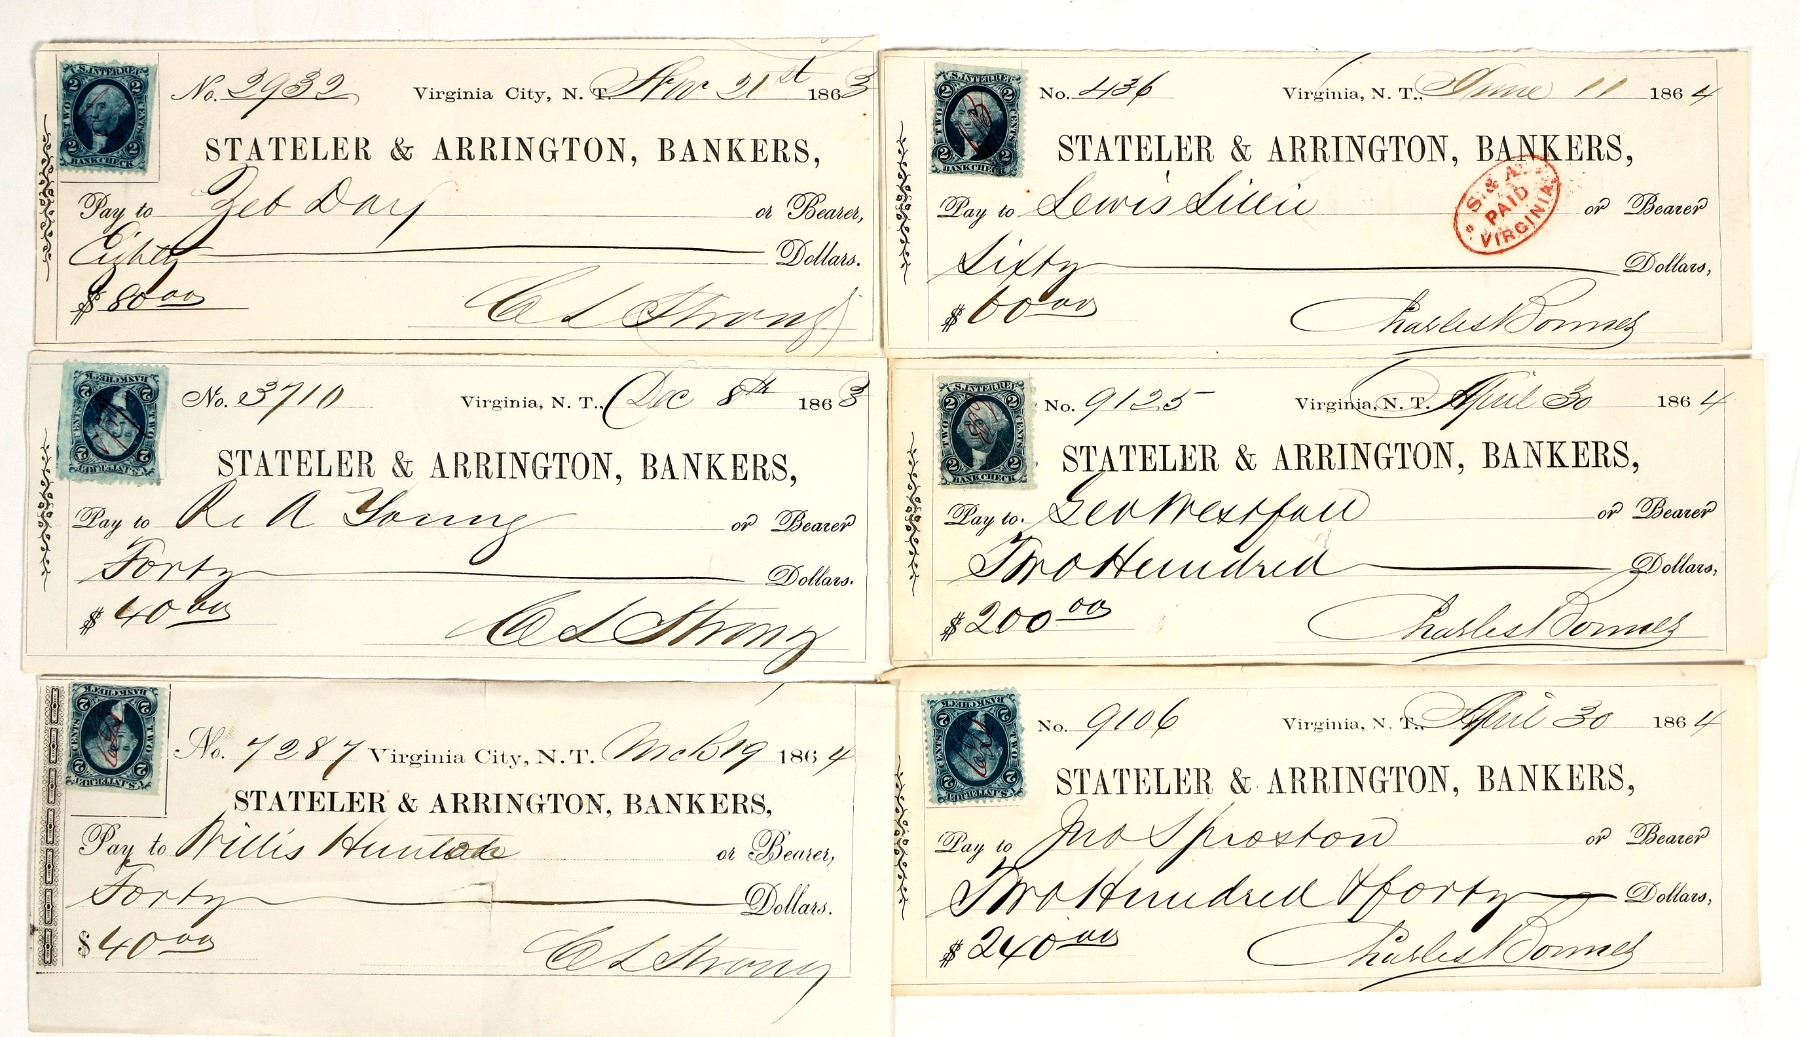 U.S. INTER. REV.
2 2
TWO CENTS
2 2
BANK CHECK
No. 2932 Virginia City, N. T. Nov 21st 1863
STATELER & ARRINGTON, BANKERS,
Pay to Zeb Day or Bearer,
Eighty Dollars.
$ 80 00
C L Strong
U.S. INTER. REV.
2 2
TWO CENTS
2 2
BANK CHECK
No. 436 Virginia, N. T., June 11 1864
STATELER & ARRINGTON, BANKERS,
S. & A.
PAID
VIRGINIA
Pay to Lewis or Bearer
Sixty Dollars,
$ 60 00
Charles Bonner
U.S. INTER. REV.
2 2
TWO CENTS
2 2
BANK CHECK
No. 3710 Virginia, N. T., Dec 8th 1863
STATELER & ARRINGTON, BANKERS,
Pay to R A Young or Bearer
Forty Dollars.
$ 40 00
C L Strong
U.S. INTER. REV.
2 2
TWO CENTS
2 2
BANK CHECK
No. 9125 Virginia, N. T. April 30 1864
STATELER & ARRINGTON, BANKERS,
Pay to Geo Westfall or Bearer
Two Hundred Dollars,
$ 200 00
Charles Bonner
U.S. INTER. REV.
2 2
TWO CENTS
2 2
BANK CHECK
No. 7287 Virginia City, N. T. Mch 19 1864
STATELER & ARRINGTON, BANKERS,
Pay to Willis or Bearer,
Forty Dollars.
$ 40 00
C L Strong
U.S. INTER. REV.
2 2
TWO CENTS
2 2
BANK CHECK
No. 9106 Virginia, N. T., April 30 1864
STATELER & ARRINGTON, BANKERS,
Pay to Jno Sproston or Bearer
Two Hundred & forty Dollars,
$ 240 00
Charles Bonner